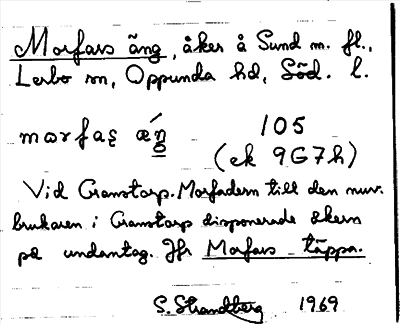 Morfars äng, åker å Sund m. fl.,
Lerbo sn, Oppunda hd, Söd. l.
105
(ek 9G7h)
Vid Cramstorp. Morfadern till den nuv.
brukaren i Cramstorp disponerade åkern
på undantag. Jfr Morfars täppa.
S. Strandberg 1969